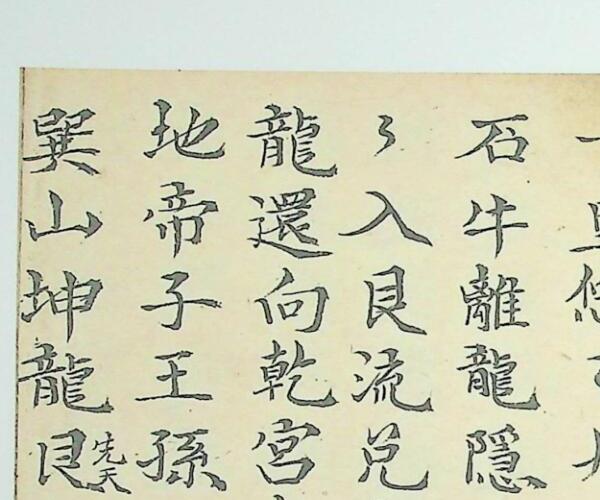 石牛離龍隱
〻入艮流兌
龍還向乾宮
地帝子王孫
巽山坤龍艮先天